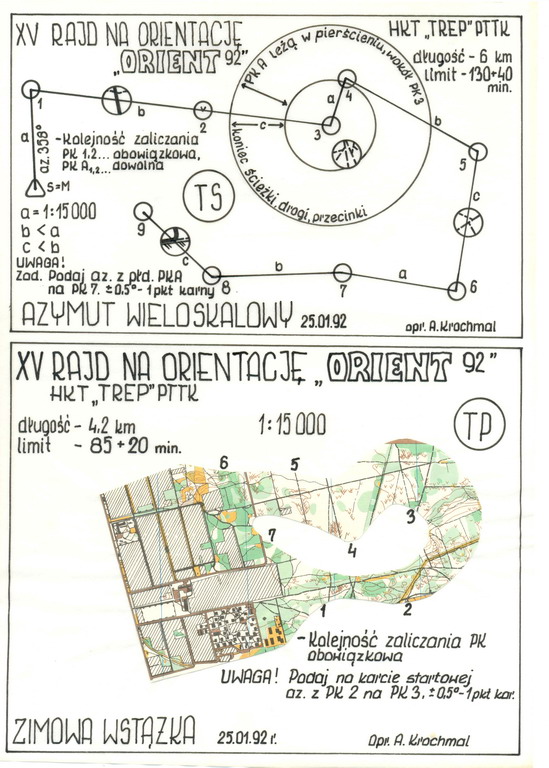 XV RAJD NA ORIENTACJĘ
„ORIENT 92"
HKT „TREP" PTTK
długość - 6 km
limit - 130+40
min.
PKA leżą w pierścieniu, wokół PK3
koniec ścieżki, drogi, przecinki
1
b
2
3
a
4
b
5
c
6
a
7
b
8
c
9
c
a
az. 358°
S=M
- Kolejność zaliczania
PK 1,2... obowiązkowa,
PK A1,2... dowolna
TS
a = 1:15 000
b < a
c < b
UWAGA!
Zad. Podaj az. z płd. PKA
na PK 7. ±0.5° - 1 pkt karny
AZYMUT WIELOSKALOWY 25.01.92
opr. A. Krochmal
XV RAJD NA ORIENTACJĘ „ORIENT 92"
HKT „TREP" PTTK
długość - 4,2 km
limit - 85+20 min.
1:15 000
TP
6
5
3
7
4
1
2
- Kolejność zaliczania PK
obowiązkowa
UWAGA! Podaj na karcie startowej
az. z PK 2 na PK 3, ±0,5° - 1 pkt kar.
ZIMOWA WSTĄŻKA 25.01.92 r.
Opr. A. Krochmal